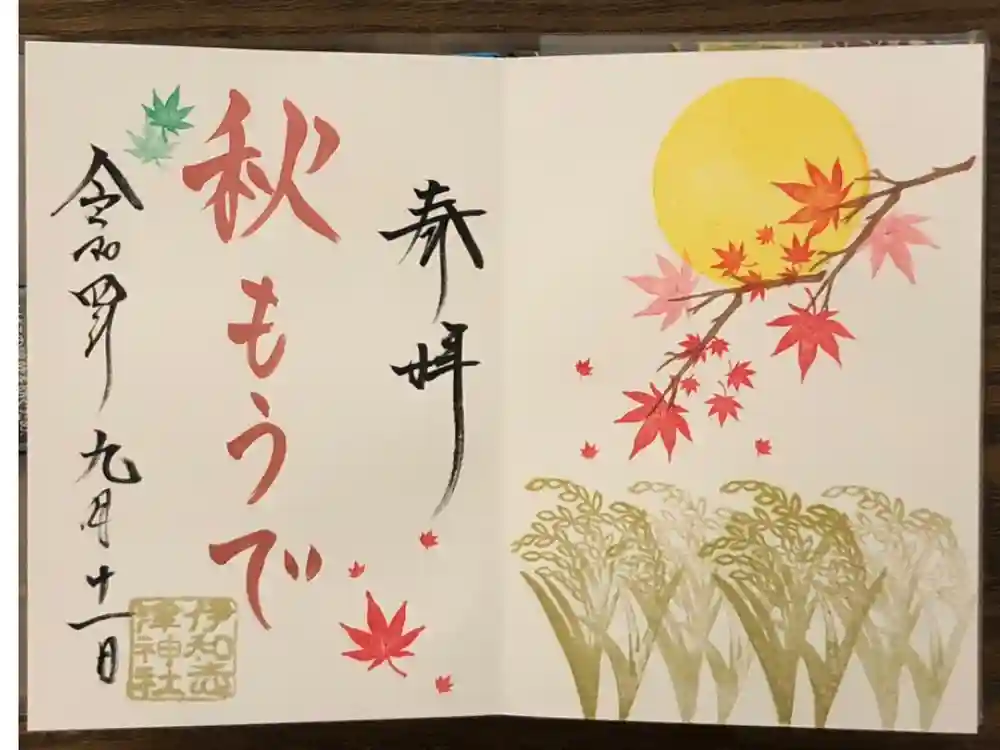 奉拝
秋もうで
令和四年九月十一日
伊和志
津神社